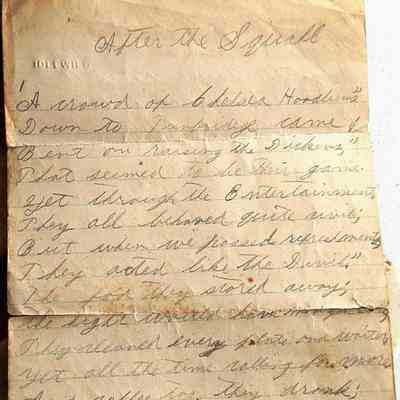 After the Squall
"A crowd of Chelsea Hoodlums"
Down to Tunbridge came
Bent on raising the Dickens,"
That seemed to be their game.
Yet through the Entertainment
They all behaved quite civil;
But when we passed refreshments
They acted like the Devil."
The they stored away;
the sight would have
They cleaned every plate one waiter
Yet all the time calling for more
And coffee too they drank;